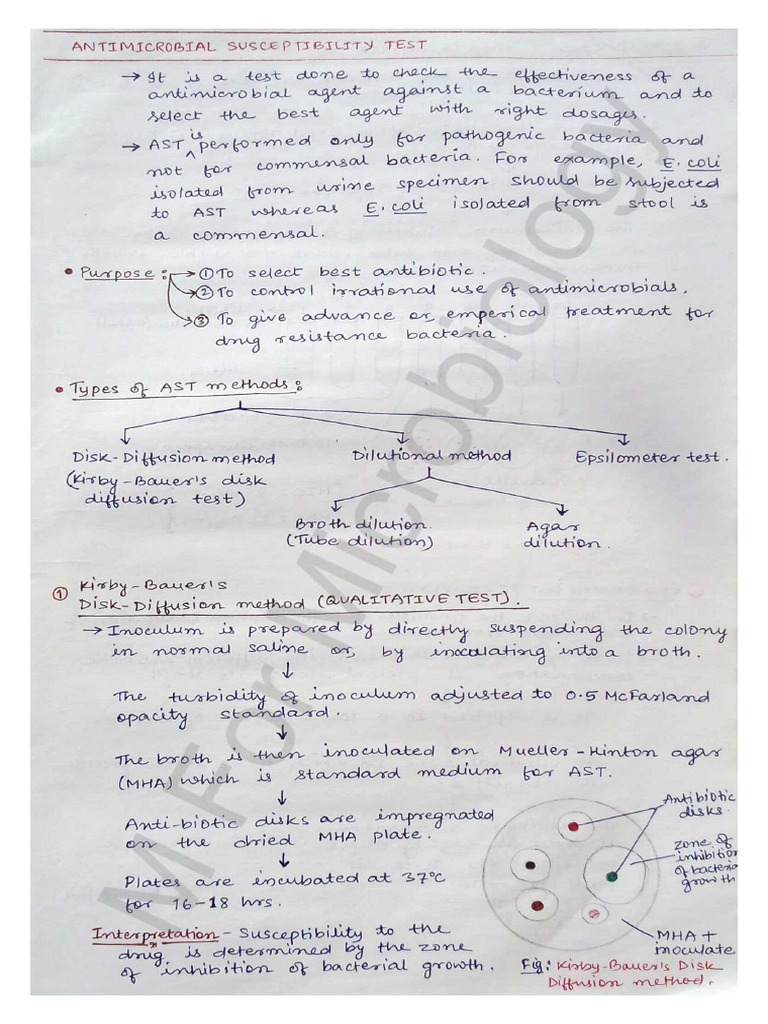 ANTIMICROBIAL SUSCEPTIBILITY TEST
→ It is a test done to check the effectiveness of a
antimicrobial agent against a bacterium and to
select the best agent with right dosages.
→ AST is performed only for pathogenic bacteria and
not for commensal bacteria. For example, E. coli
isolated from urine specimen should be subjected
to AST whereas E. coli isolated from stool is
a commensal.
• Purpose : → ① To select best antibiotic.
→ ② To control irrational use of antimicrobials.
→ ③ To give advance or, emperical treatment for
drug resistance bacteria.
• Types of AST methods :
Disk-Diffusion method
(Kirby-Bauer's disk
diffusion test)
Dilutional method
Epsilometer test.
Broth dilution.
(Tube dilution)
Agar
dilution.
① Kirby-Bauer's
Disk-Diffusion method (QUALITATIVE TEST).
→ Inoculum is prepared by directly suspending the colony
in normal saline or, by inoculating into a broth.
↓
The turbidity of inoculum adjusted to 0.5 McFarland
opacity standard.
↓
The broth is then inoculated on Mueller-Hinton agar
(MHA) which is standard medium for AST.
↓
Anti-biotic disks are impregnated
on the dried MHA plate.
↓
Plates are incubated at 37°C
for 16-18 hrs.
Interpretation - Susceptibility to the
drug is determined by the zone
of inhibition of bacterial growth.
Antibiotic
disks.
zone of
inhibition
of bacteria
growth
MHA +
inoculate
Fig: Kirby-Bauer's Disk
Diffusion method.
M For Microbiology